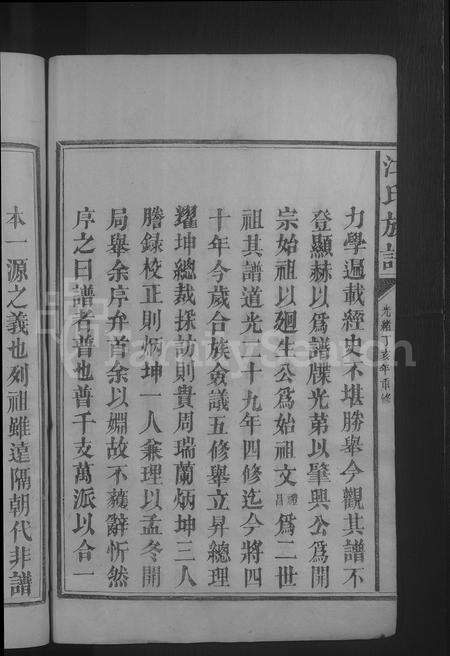 江氏族譜
光緒丁亥年重修
力學過載經史不堪勝舉今觀其譜不
登顯赫以爲譜牒光第以肇興公爲開
宗始祖以廻生公爲始祖文禮昌爲二世
祖其譜道光二十九年四修迄今將四
十年今歲合族僉議五修舉立昇總理
耀坤總裁採訪則貴周瑞蘭炳坤三人
謄錄校正則炳坤一人兼理以孟冬開
局舉余序弁首余以婣故不辭忻然
序之曰譜者普也普千支萬派以合一
本一源之義也列祖雖遠隔朝代非譜
FamilySearch